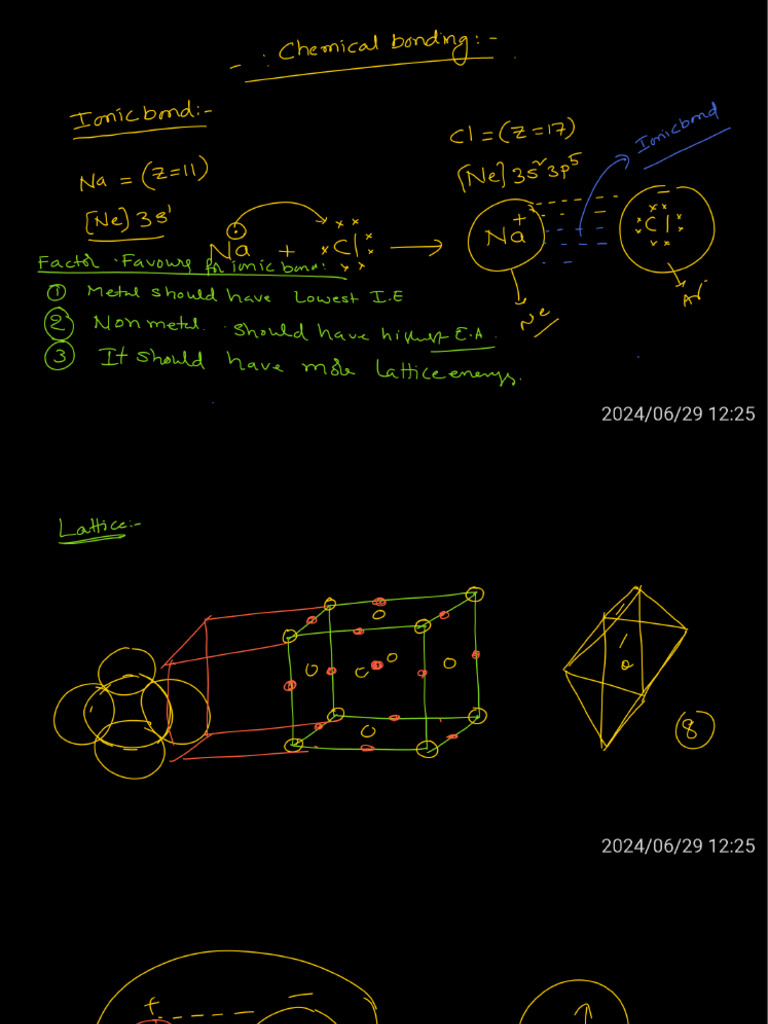 - : Chemical bonding:-
Ionic bond:-
Na = (Z=11)
[Ne] 3s¹
Cl = (Z=17)
[Ne] 3s² 3p⁵
Ionic bond
Na + Cl → Na⁺ Cl⁻
Ne
Ar
Factor Favours for ionic bond:
① Metal should have Lowest I.E
② Non metal should have highest E.A.
③ It should have more lattice energy.
2024/06/29 12:25
Lattice:-
8
2024/06/29 12:25
+ - - - - -